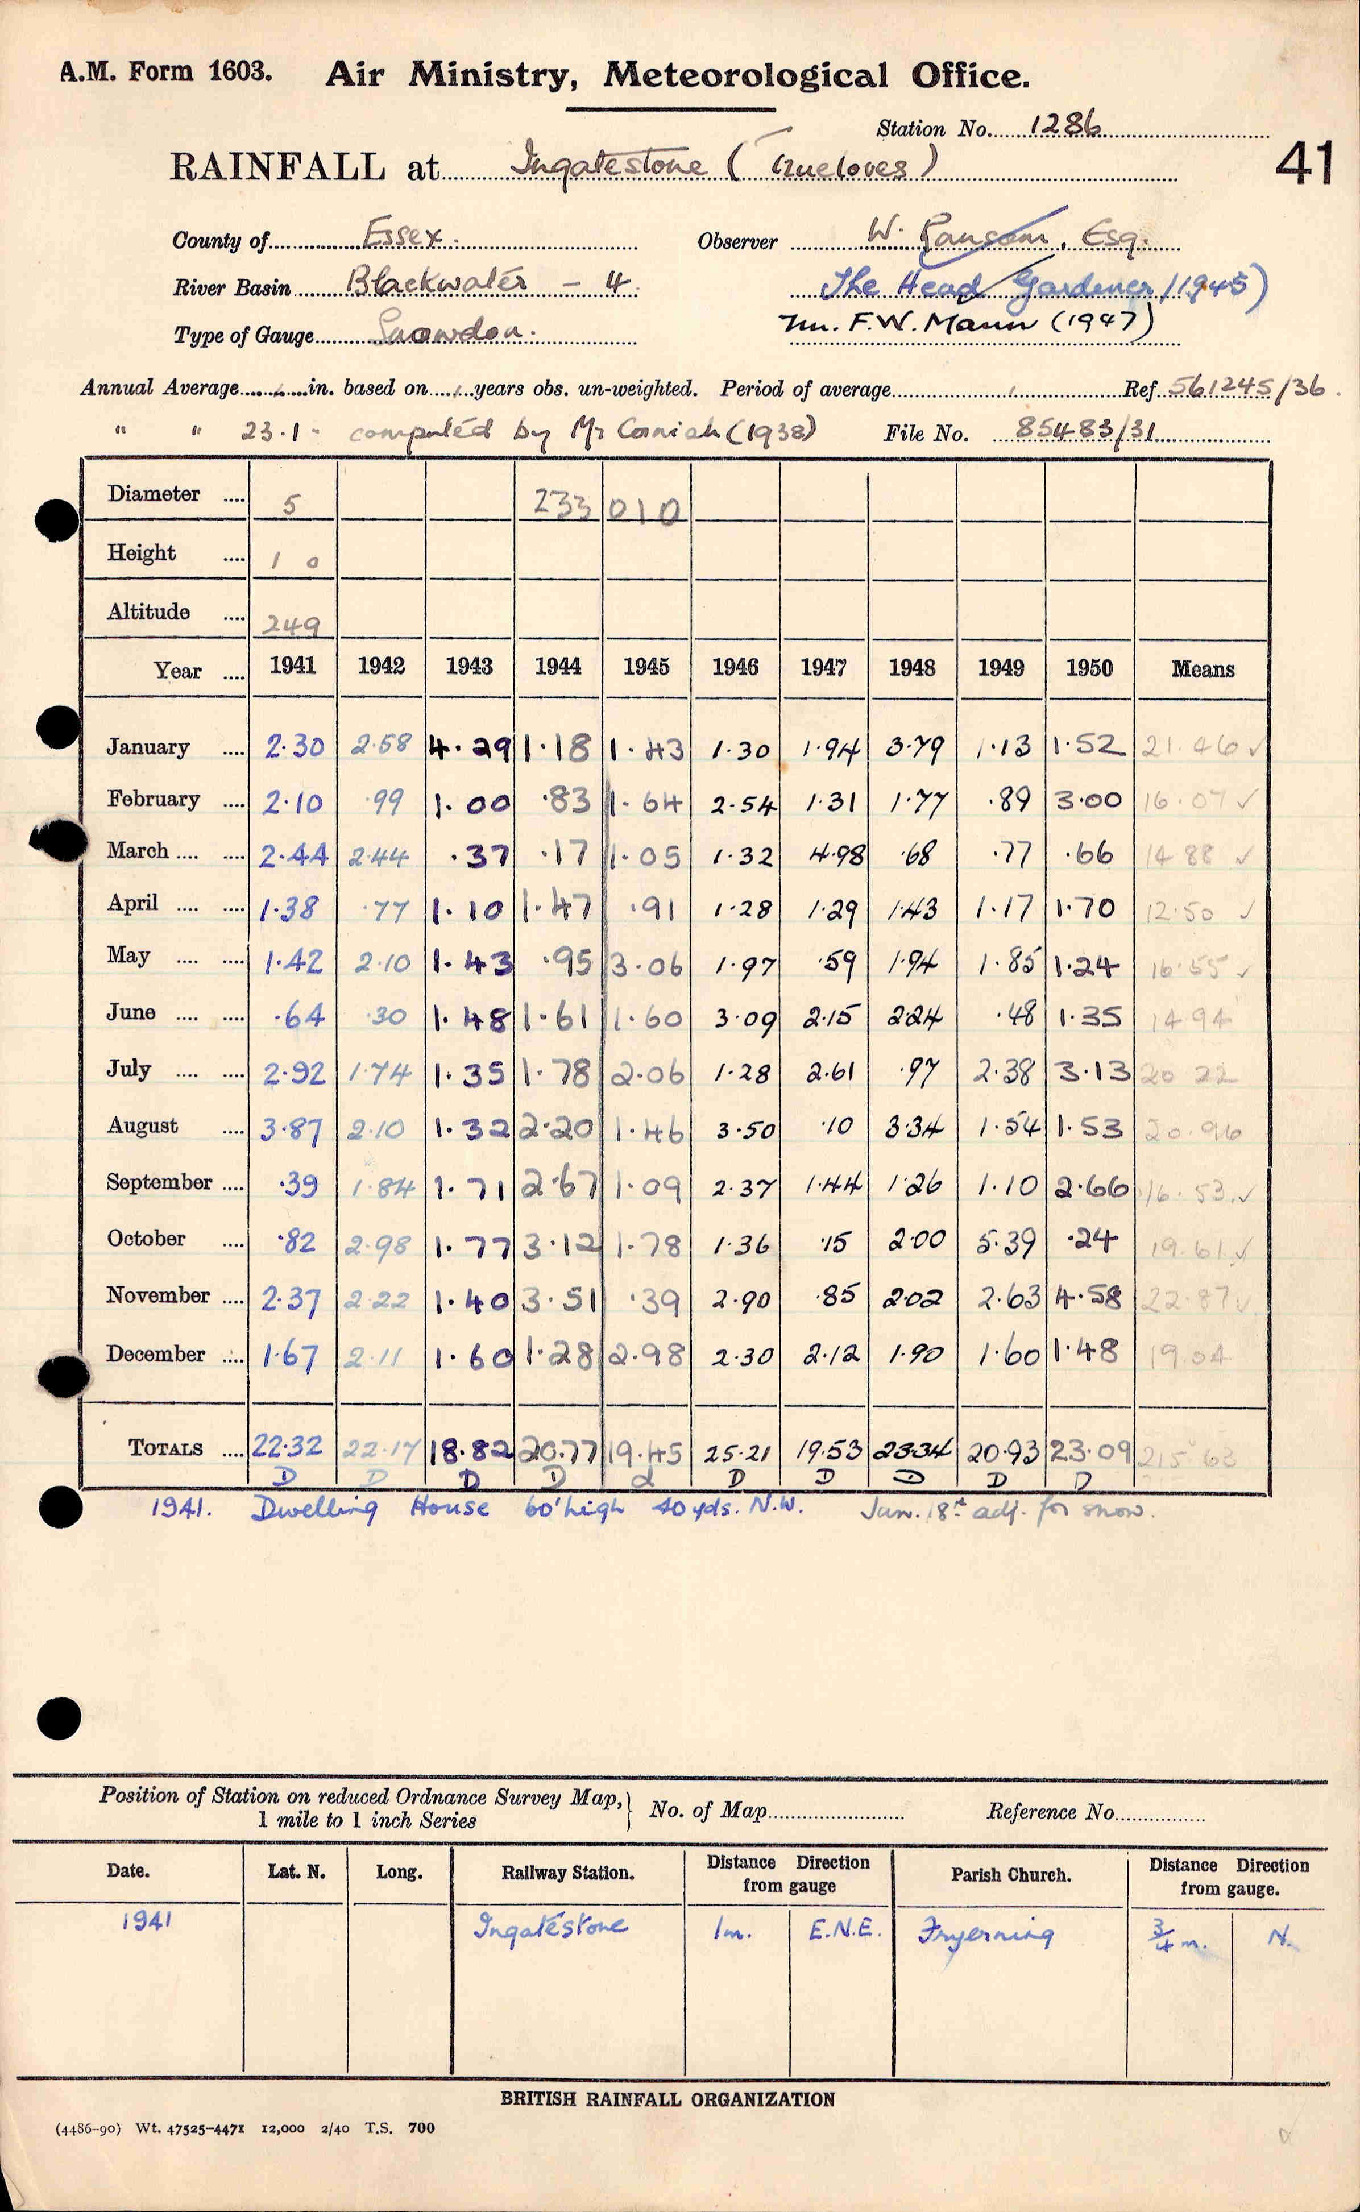 A.M. Form 1603. Air Ministry, Meteorological Office.
Station No. 1286
41
RAINFALL at Ingatestone (Trueloves)
County of Essex. Observer W. Ransom, Esq.
River Basin Blackwater - 4. The Head Gardener (1945)
Type of Gauge Snowdon. Mr. F.W. Mann (1947)
Annual Average in. based on years obs. un-weighted. Period of average Ref 561245/36.
" " 23.1 - computed by Mr Cornish (1938) File No. 85483/31
Diameter .... 5 233 010
Height .... 1 0
Altitude .... 249
Year .... 1941 1942 1943 1944 1945 1946 1947 1948 1949 1950 Means
January .... 2.30 2.58 4.29 1.18 1.43 1.30 1.94 3.79 1.13 1.52 21.46 ✓
February .... 2.10 .99 1.00 .83 1.64 2.54 1.31 1.77 .89 3.00 16.07 ✓
March .... .... 2.44 2.44 .37 .17 1.05 1.32 4.98 .68 .77 .66 14.88 ✓
April .... .... 1.38 .77 1.10 1.47 .91 1.28 1.29 1.43 1.17 1.70 12.50 ✓
May .... .... 1.42 2.10 1.43 .95 3.06 1.97 .59 1.94 1.85 1.24 16.55 ✓
June .... .... .64 .30 1.48 1.61 1.60 3.09 2.15 2.24 .48 1.35 14.94
July .... .... 2.92 1.74 1.35 1.78 2.06 1.28 2.61 .97 2.38 3.13 20 22
August .... 3.87 2.10 1.32 2.20 1.46 3.50 .10 3.34 1.54 1.53 20.96
September .... .39 1.84 1.71 2.67 1.09 2.37 1.44 1.26 1.10 2.66 16.53 ✓
October .... .82 2.98 1.77 3.12 1.78 1.36 .15 2.00 5.39 .24 19.61 ✓
November .... 2.37 2.22 1.40 3.51 .39 2.90 .85 2.02 2.63 4.58 22.87 ✓
December .... 1.67 2.11 1.60 1.28 2.98 2.30 2.12 1.90 1.60 1.48 19.04
TOTALS .... 22.32 22.17 18.82 20.77 19.45 25.21 19.53 23.34 20.93 23.09 215.63
D D D D d D D D D D
1941. Dwelling House 60' high 40 yds. N.W. Jan. 18th adj. for snow.
Position of Station on reduced Ordnance Survey Map, 1 mile to 1 inch Series } No. of Map Reference No.
Date. Lat. N. Long. Railway Station. Distance Direction from gauge Parish Church. Distance Direction from gauge.
1941 Ingatestone 1m. E.N.E. Fryerning 3/4 m. N.
BRITISH RAINFALL ORGANIZATION
(4486-90) Wt. 47525-4471 12,000 2/40 T.S. 700